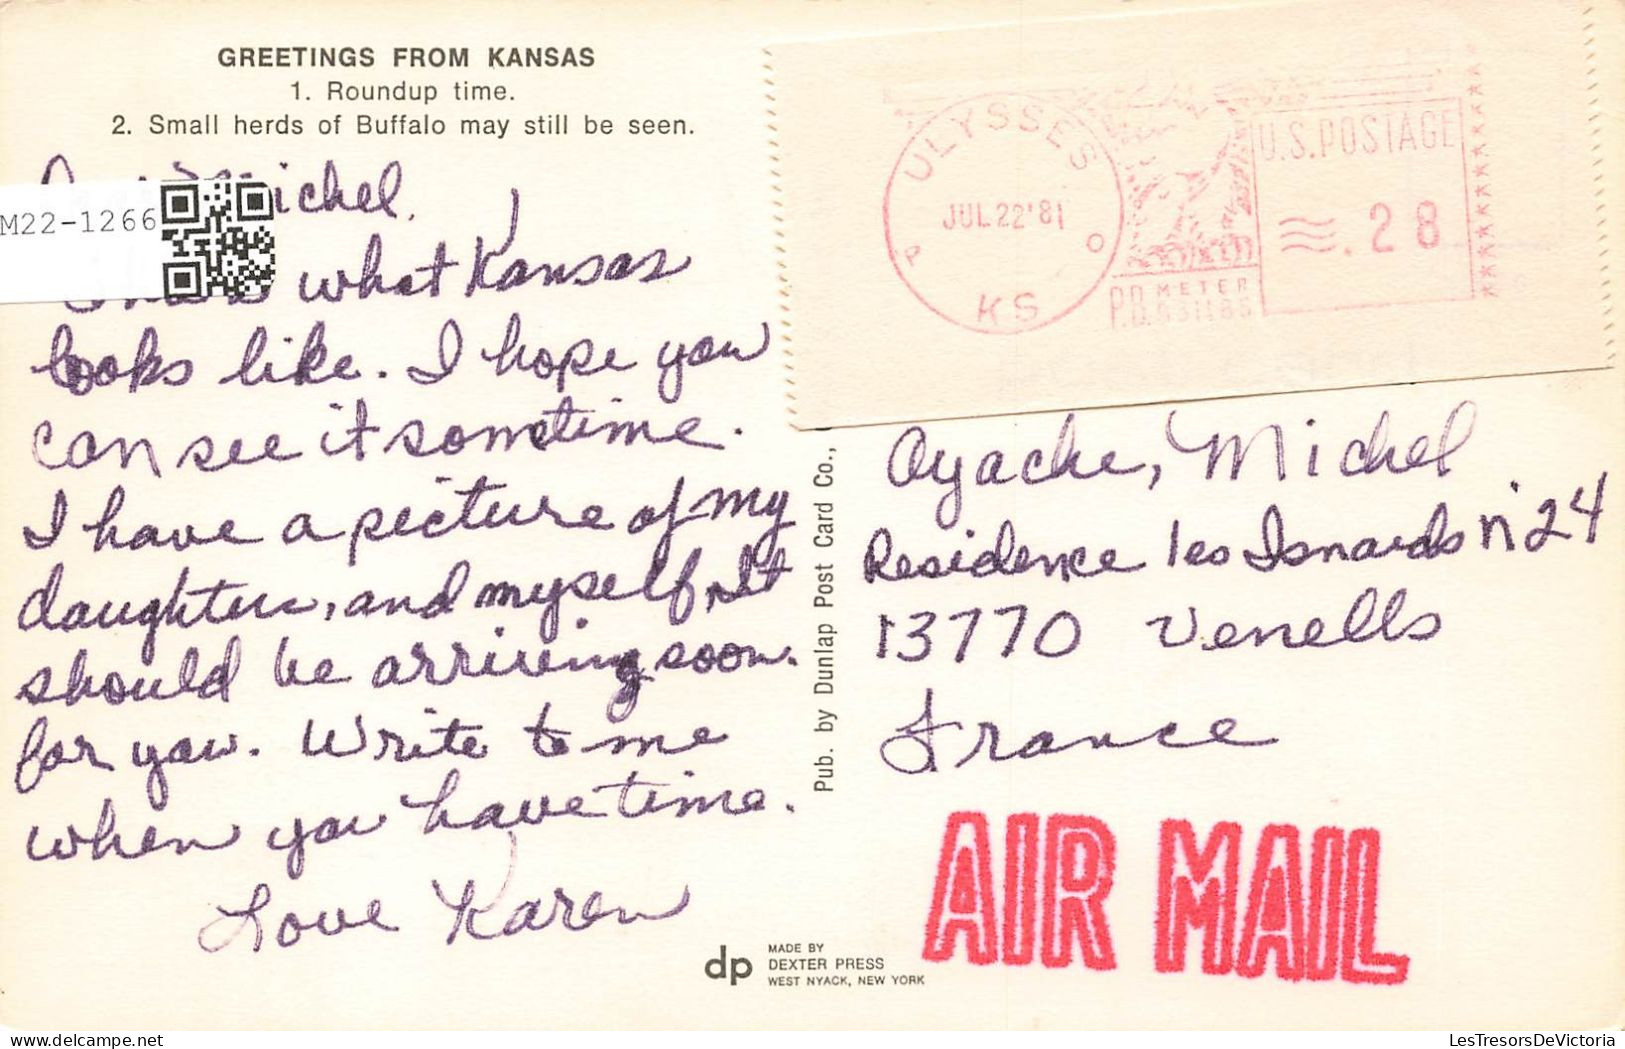 GREETINGS FROM KANSAS
1. Roundup time.
2. Small herds of Buffalo may still be seen.
Michel.
what Kansas
looks like. I hope you
can see it sometime.
I have a picture of my
daughters, and myself, It
should be arriving soon.
for you. Write to me
when you have time.
Love Karen
M22-1266
ULYSSES
JUL 22 '81
P O
KS
U.S. POSTAGE
.28
METER
P.B.
Ayache, Michel
Residence les Isnards n° 24
13770 Venells
France
AIR MAIL
Pub. by Dunlap Post Card Co.,
dp
MADE BY
DEXTER PRESS
WEST NYACK, NEW YORK
LesTresorsDeVictoria